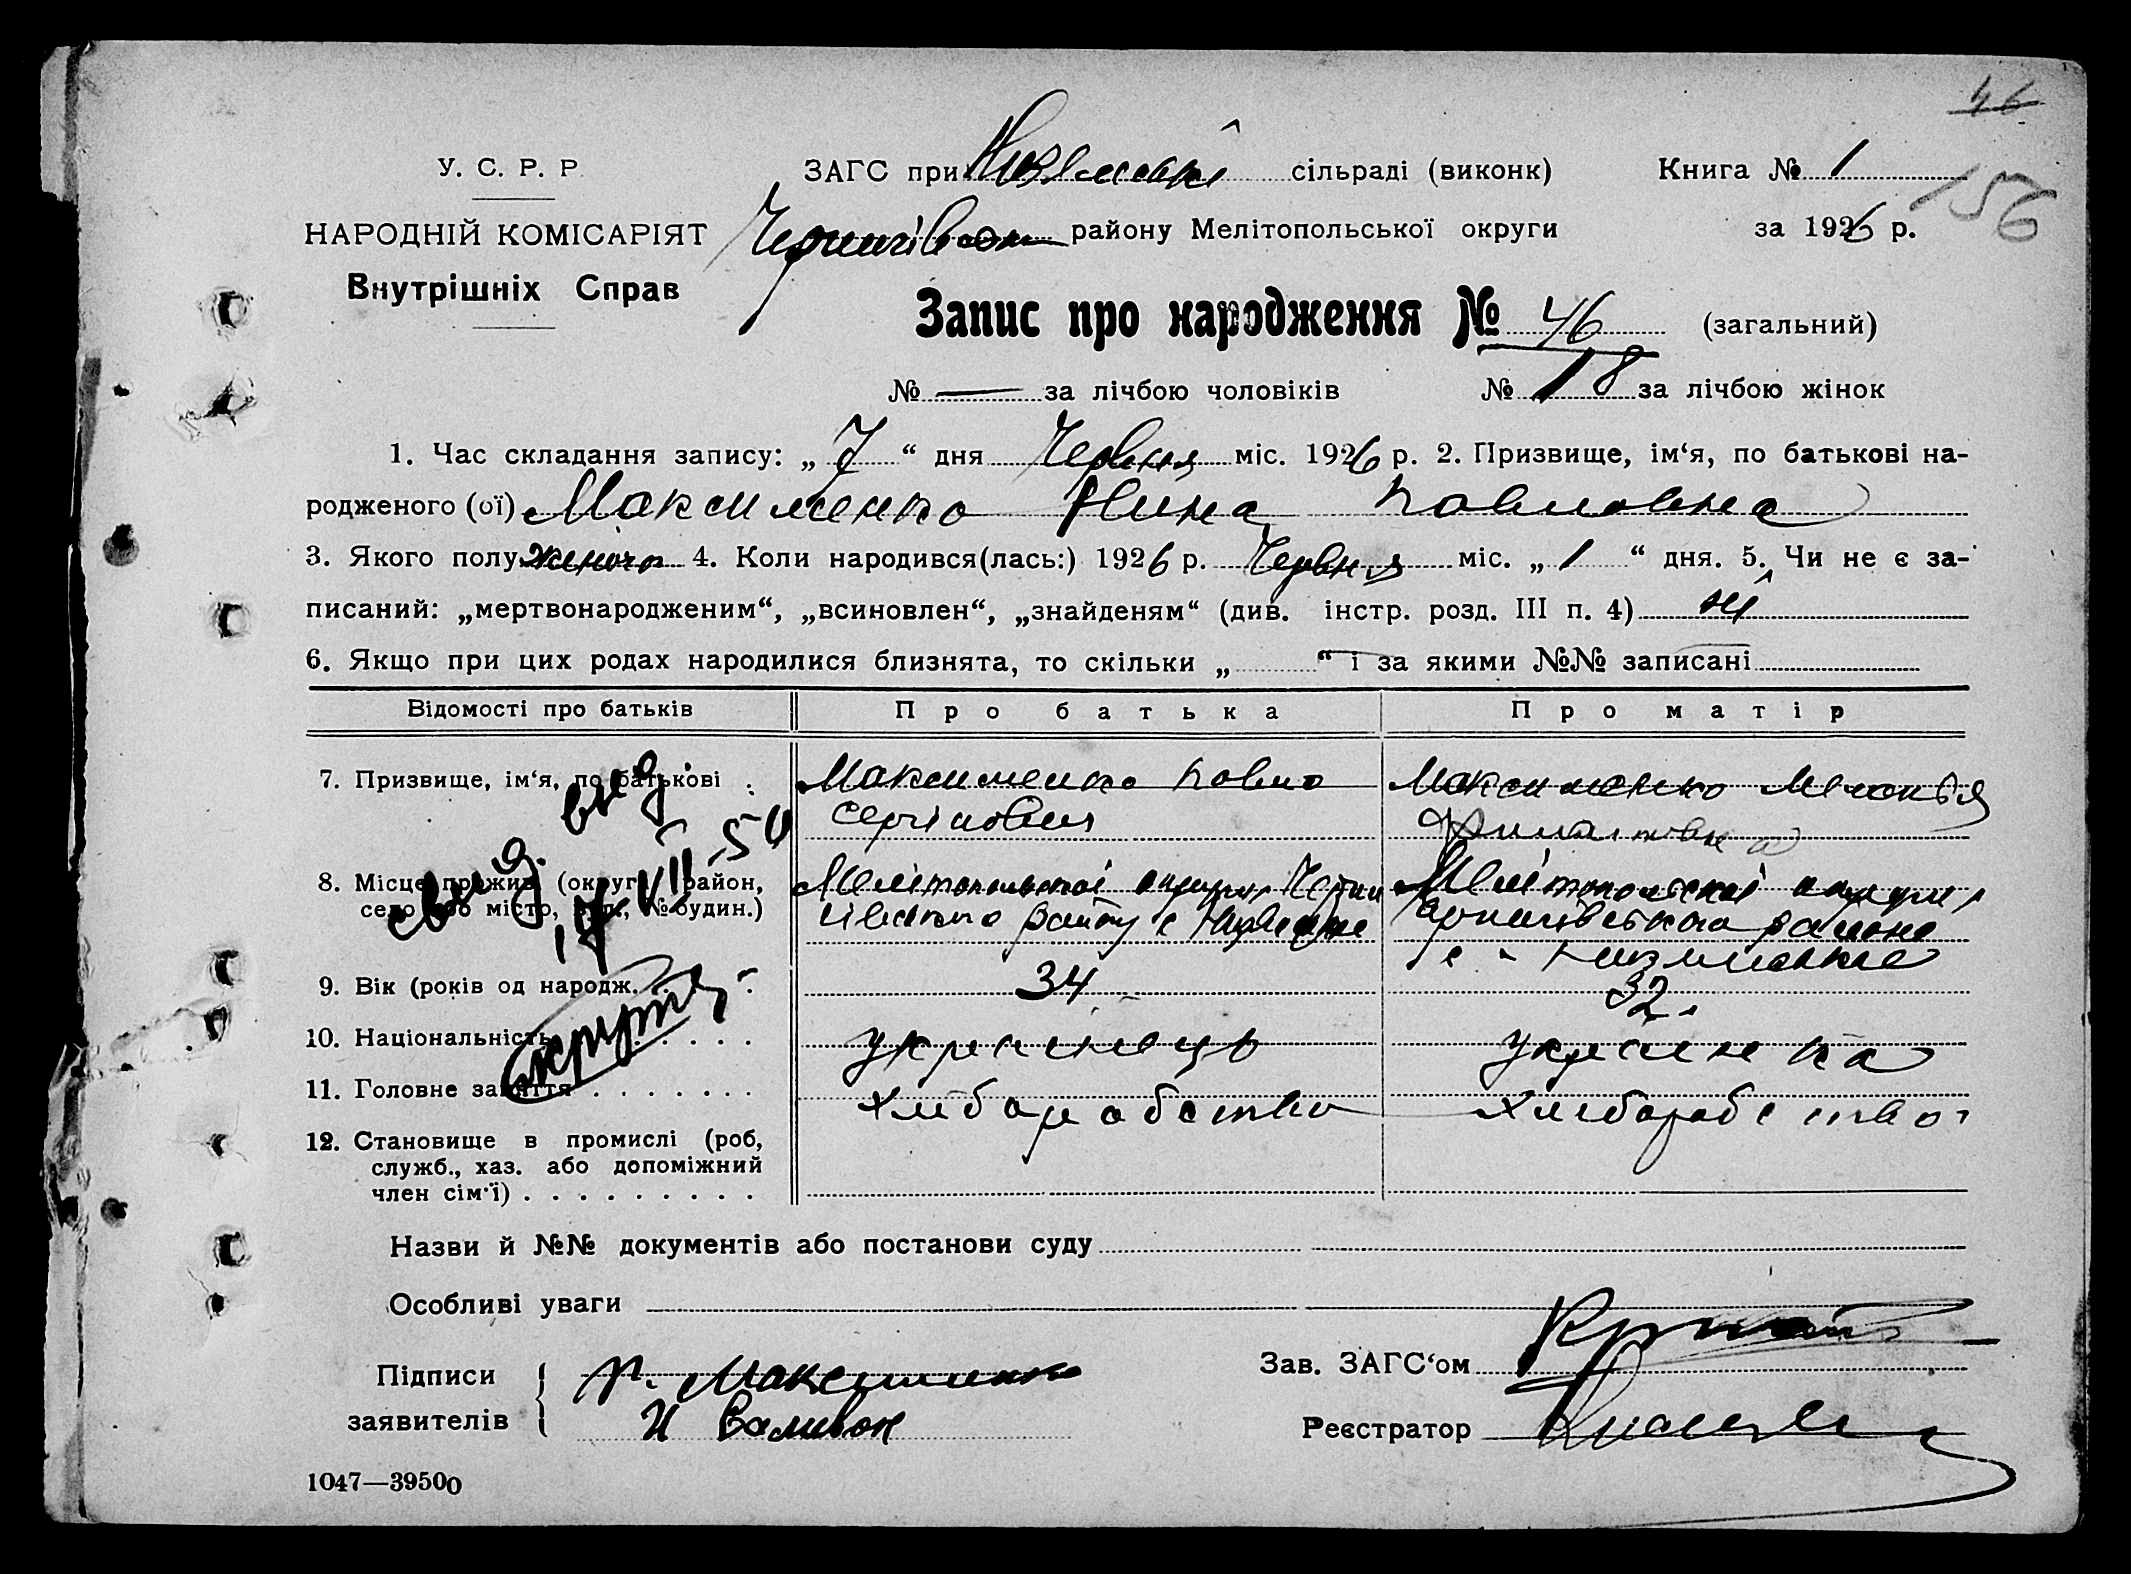 46
У. С. Р. Р.
ЗАГС при Низянській сільраді (виконк)
Книга № 1
156
НАРОДНІЙ КОМІСАРІЯТ
Внутрішніх Справ
Чернигівськ району Мелітопольської округи
за 1926 р.
Запис про народження № 46 (загальний)
№ — за лічбою чоловіків № 18 за лічбою жінок
1. Час складання запису: „ 7 “ дня Червня міс. 1926 р. 2. Призвище, ім‘я, по батькові на-
родженого (ої) Максименко Нина Павловна
3. Якого полу жиночо 4. Коли народився(лась:) 1926 р. Червня міс. „ 1 “ дня. 5. Чи не є за-
писаний: „мертвонародженим“, „всиновлен“, „знайденям“ (див. інстр. розд. III п. 4) ні
6. Якщо при цих родах народилися близнята, то скільки „ “ і за якими №№ записані
Відомості про батьків Про батька Про матір
7. Призвище, ім‘я, по батькові Максименко Павло Максименко
Сергіиович
8. Місце прожив. (округа, район, Мелітопольської округи Черни Мелітопольскої округи
село або місто, вул., № будин.) гівського району с
района
с.
9. Вік (років од народж. 34 32
10. Національність українець українка
11. Головне заняття Хліборобство Хлиборобство
12. Становище в промислі (роб,
служб., хаз. або допоміжний
член сім‘ї)
свид. выд.
17 VII-50
Назви й №№ документів або постанови суду
Особливі уваги
Підписи П. Максименко
заявителів И Валивок
Зав. ЗАГС‘ом
Реєстратор
1047—39500